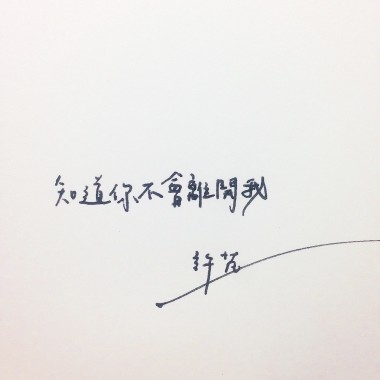 知道你不會離開我
許苑